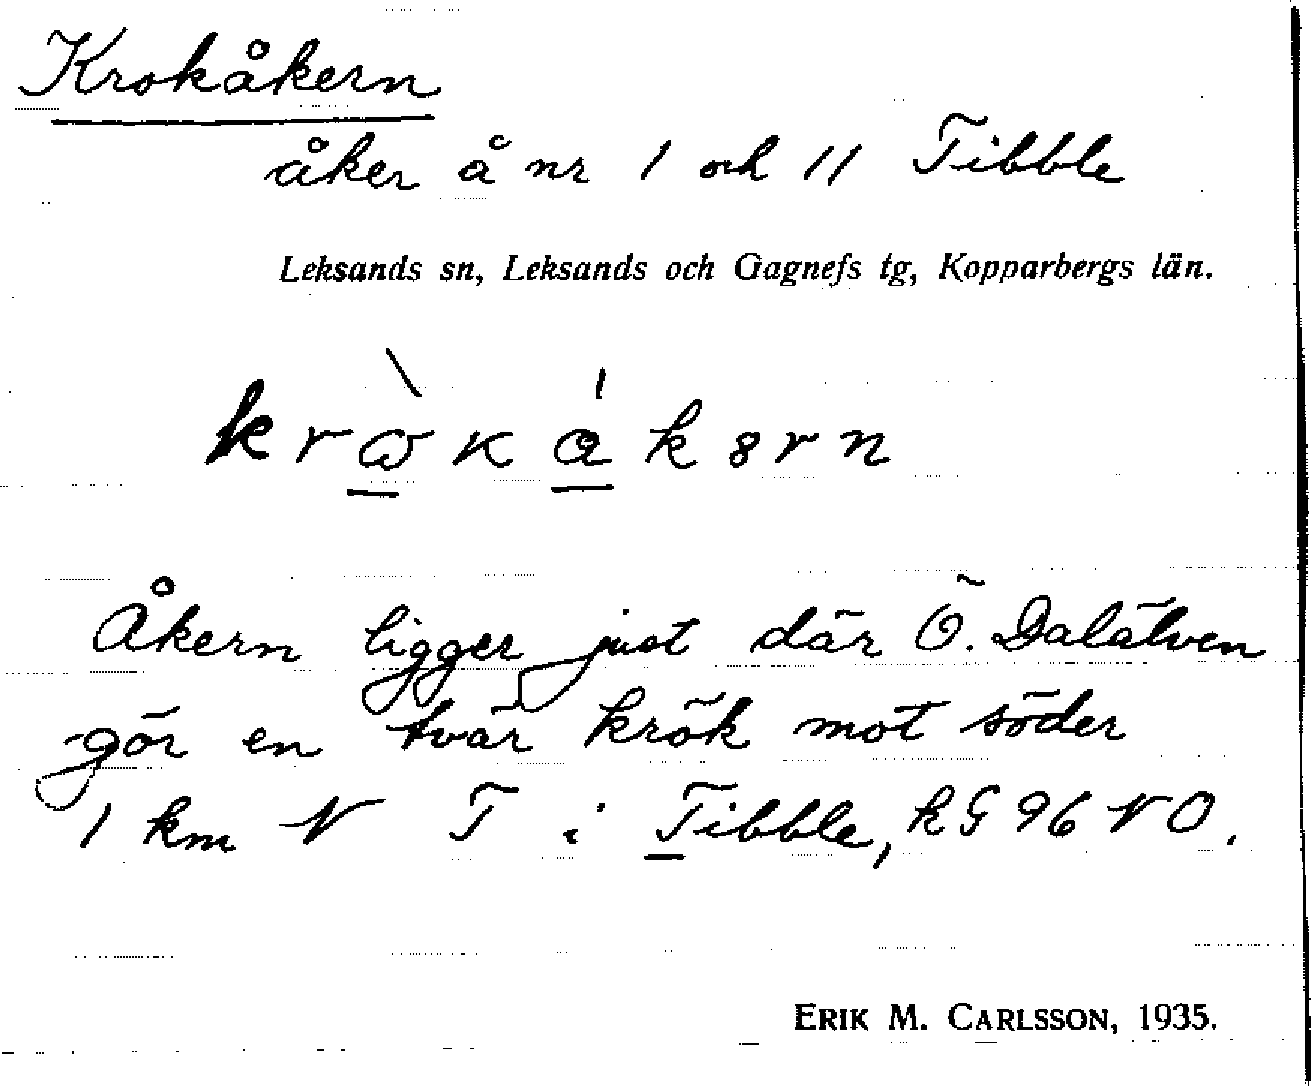 Krokåkern
åker å nr 1 och 11 Tibble
Leksands sn, Leksands och Gagnefs tg, Kopparbergs län.
Åkern ligger just där Ö. Dalälven
gör en tvär krök mot söder
1 km N T i Tibble, kG 96 NO.
ERIK M. CARLSSON, 1935.